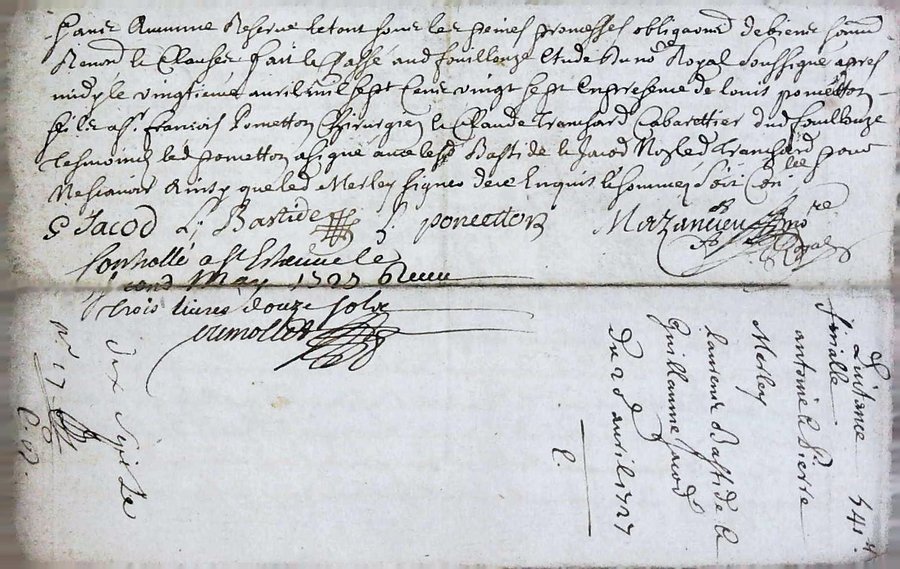 sans aucune Reserve le tout sous les peines promesses obligaons de biens soum
Renon & Clauses fait et passé aud fouillouze Etude du no.re Royal soussigné apres
midy le vingtieme avril mil sept cens vingt sept En presence de louis pometton
fils a sr. francois Pometton Chirurgien & Claude Tranchard Cabarettier dud fouillouze
tesmoins led pometton a signé avec lesd Bastide & Jacod Non led Tranchard pour
ne scavoir Ainsy que led Merley signer de ce Enquis & sommés soit Con.lée
G Jacod L Bastide L pometton no.re Royal
Controllé a st Estienne le
second May 1727 Reçu
trois livres douze sols
Quittance 541#
finalle
antoine & Pierre
Merley
laurent Bastide &
Guillaume Jacod
Du 20 avril 1727
C.
dix
nr 17